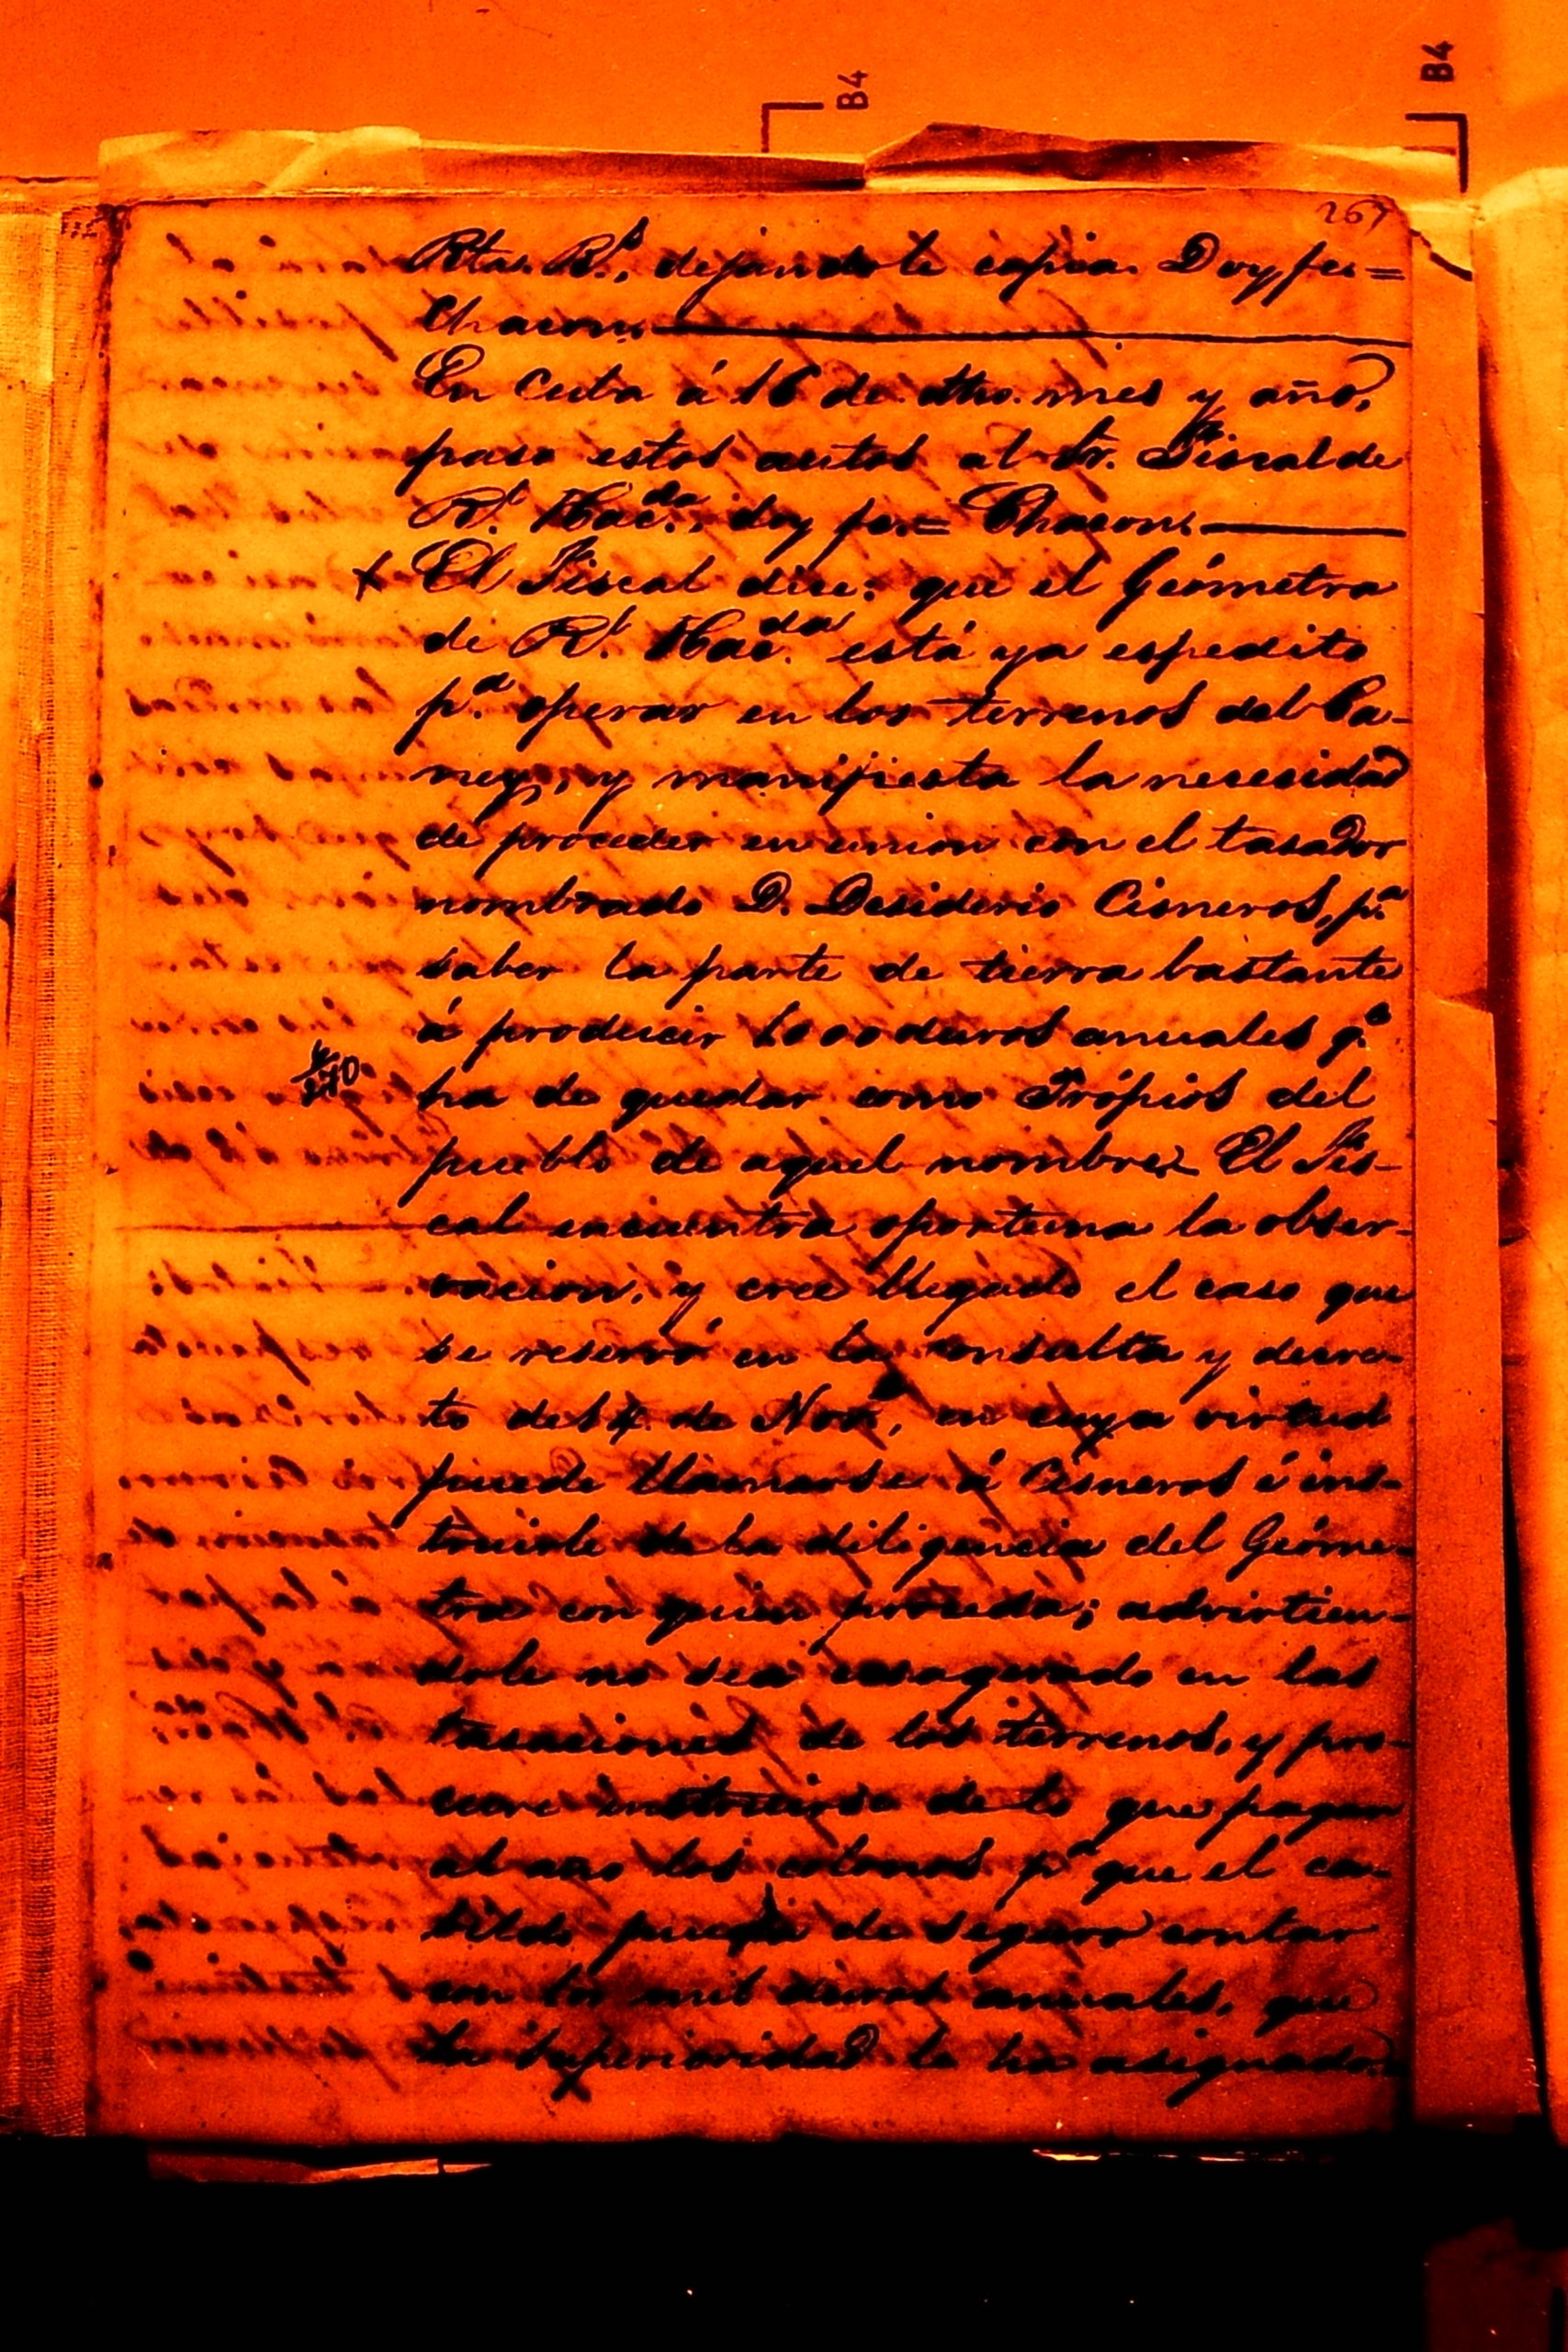 B4
B4
267
Rtas. R.s, dejandole copia. Doy fee=
Chacon.
En Cuba á 16 de dho. mes y año,
paso estos autos al Sr. Fiscal de
Rl. Hacda., doy fe.= Chacon.
El Fiscal dice: que el Geómetra
de Rl. Hacda. está ya espedito
pa. operar en los terrenos del Ca-
ney, y manifiesta la necesidad
de proceder en union con el tasador
nombrado D. Desiderio Cisneros, pa.
saber la parte de tierra bastante
á producir 1000 duros anuales qe.
ha de quedar como Própios del
pueblo de aquel nombre. El Fis-
cal encuentra oportuna la obser-
vacion, y cree llegado el caso que
se reservó en la consulta y decre-
to del 4 de Nove., en cuya virtud
puede llamarse á Cisneros é ins-
truirle de la diligencia del Geóme-
tra con quien proceda; advirtien-
dole no sea exsagerado en las
tasaciones de los terrenos, y pro-
cure instruirse de lo que pagan
al año los colonos pa. que el ca-
bildo pueda de seguro contar
con los mil duros anuales, que
la Superioridad le ha asignado.